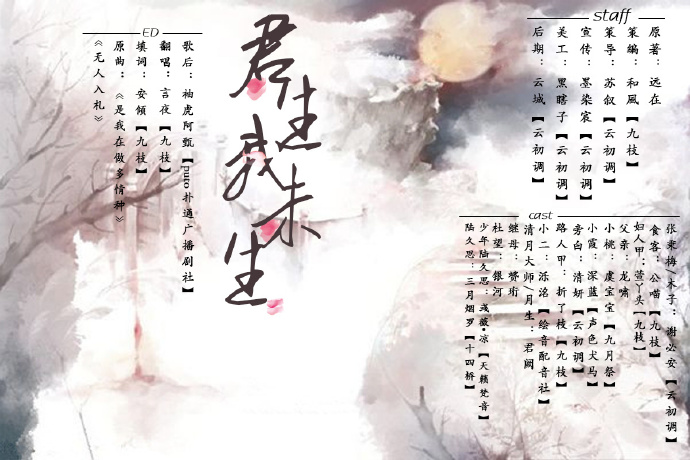 君生我未生
staff
原著：远在
策编：和风【九枝】
策导：苏叙【云初调】
宣传：墨染宸【云初调】
美工：黑瞎子【云初调】
后期：云城【云初调】
cast
张束梅/木子：谢必安【云初调】
食客：公喵【九枝】
妇人甲：萱丫头【九枝】
父亲：龙啸
小桃：虞宝宝【九月祭】
小霞：深蓝【声色犬马】
旁白：清妍【云初调】
路人甲：折了枝【九枝】
小二：泺洺【绘音配音社】
清月大师/月生：君阙
继母：赟珩
杜望：银河
少年陆久思：彧薇·凉【天籁梵音】
陆久思：三月烟罗【十四桥】
ED
歌后：袖虎阿甄【puto扑通广播剧社】
翻唱：言夜【九枝】
填词：安倾【九枝】
原曲：《是我在做多情种》
《无人入札》